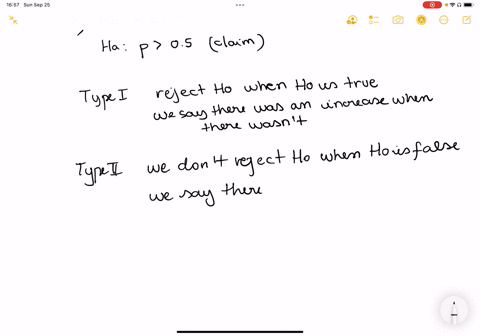 16:57 Sun Sep 25
Ha: p > 0.5 (claim)
Type I reject Ho when Ho us true
we say there was an increase when
there wasn't
Type II we don't reject Ho when Ho is false
we say there